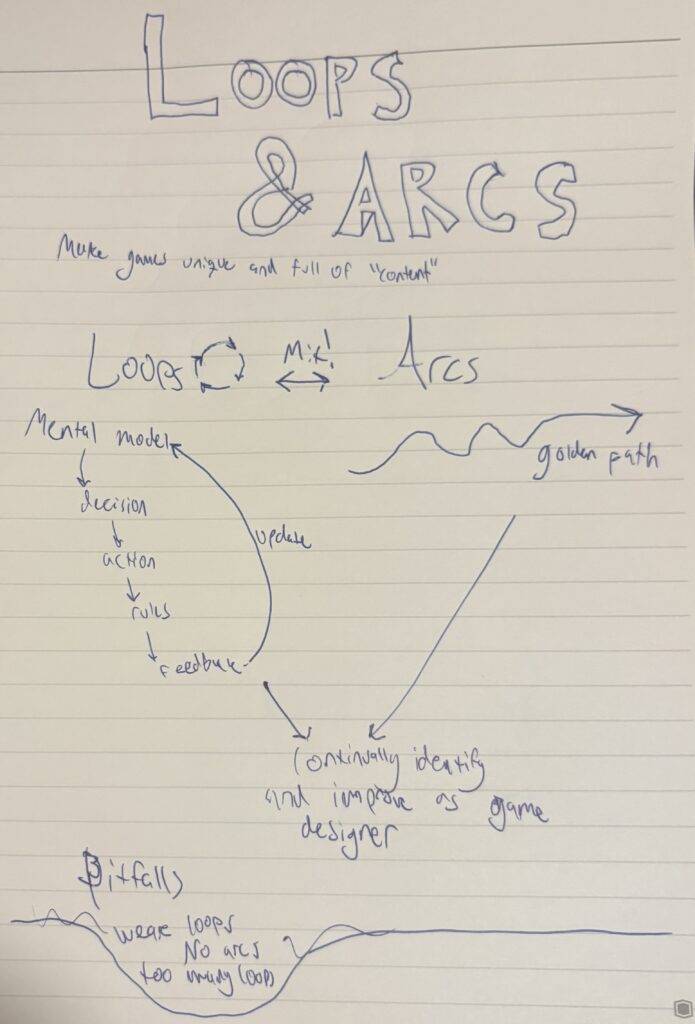 LOOPS
& ARCS
Make games unique and full of "content"
Loops Mix! Arcs
Mental model
golden path
decision
update
action
rules
Feedback
Continually identify
and improve as game
designer
Pitfalls
weak loops
No arcs
too many loops